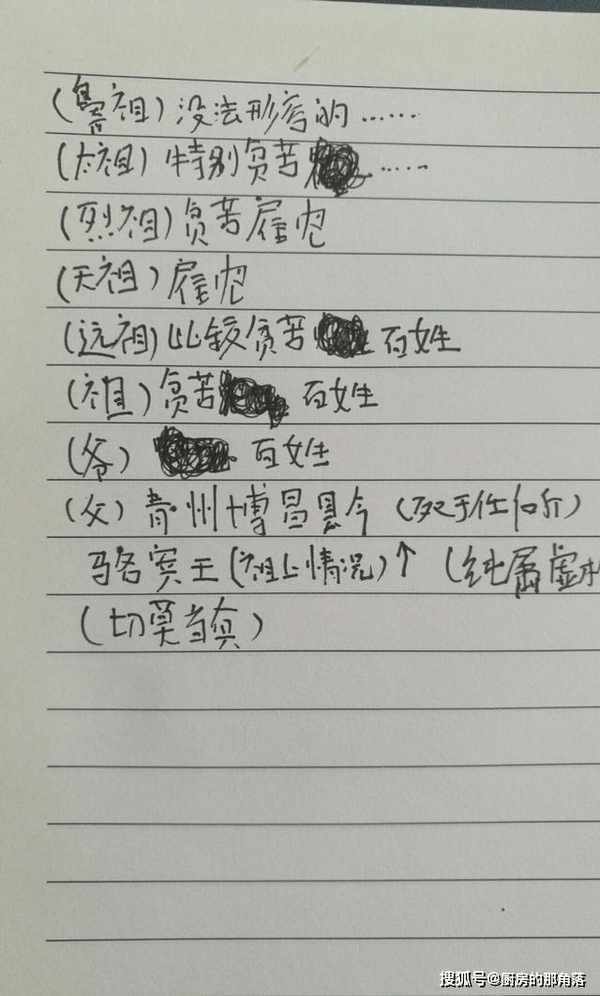 (鼻祖) 没法形容的……
(太祖) 特别贫苦……
(烈祖) 贫苦雇农
(天祖) 雇农
(远祖) 比较贫苦 百姓
(祖) 贫苦 百姓
(爷) 百姓
(父) 青州博昌县令 (死于任何所)
骆宾王 (祖上情况) ↑ (纯属虚
(切莫当真)
搜狐号@厨房的那角落